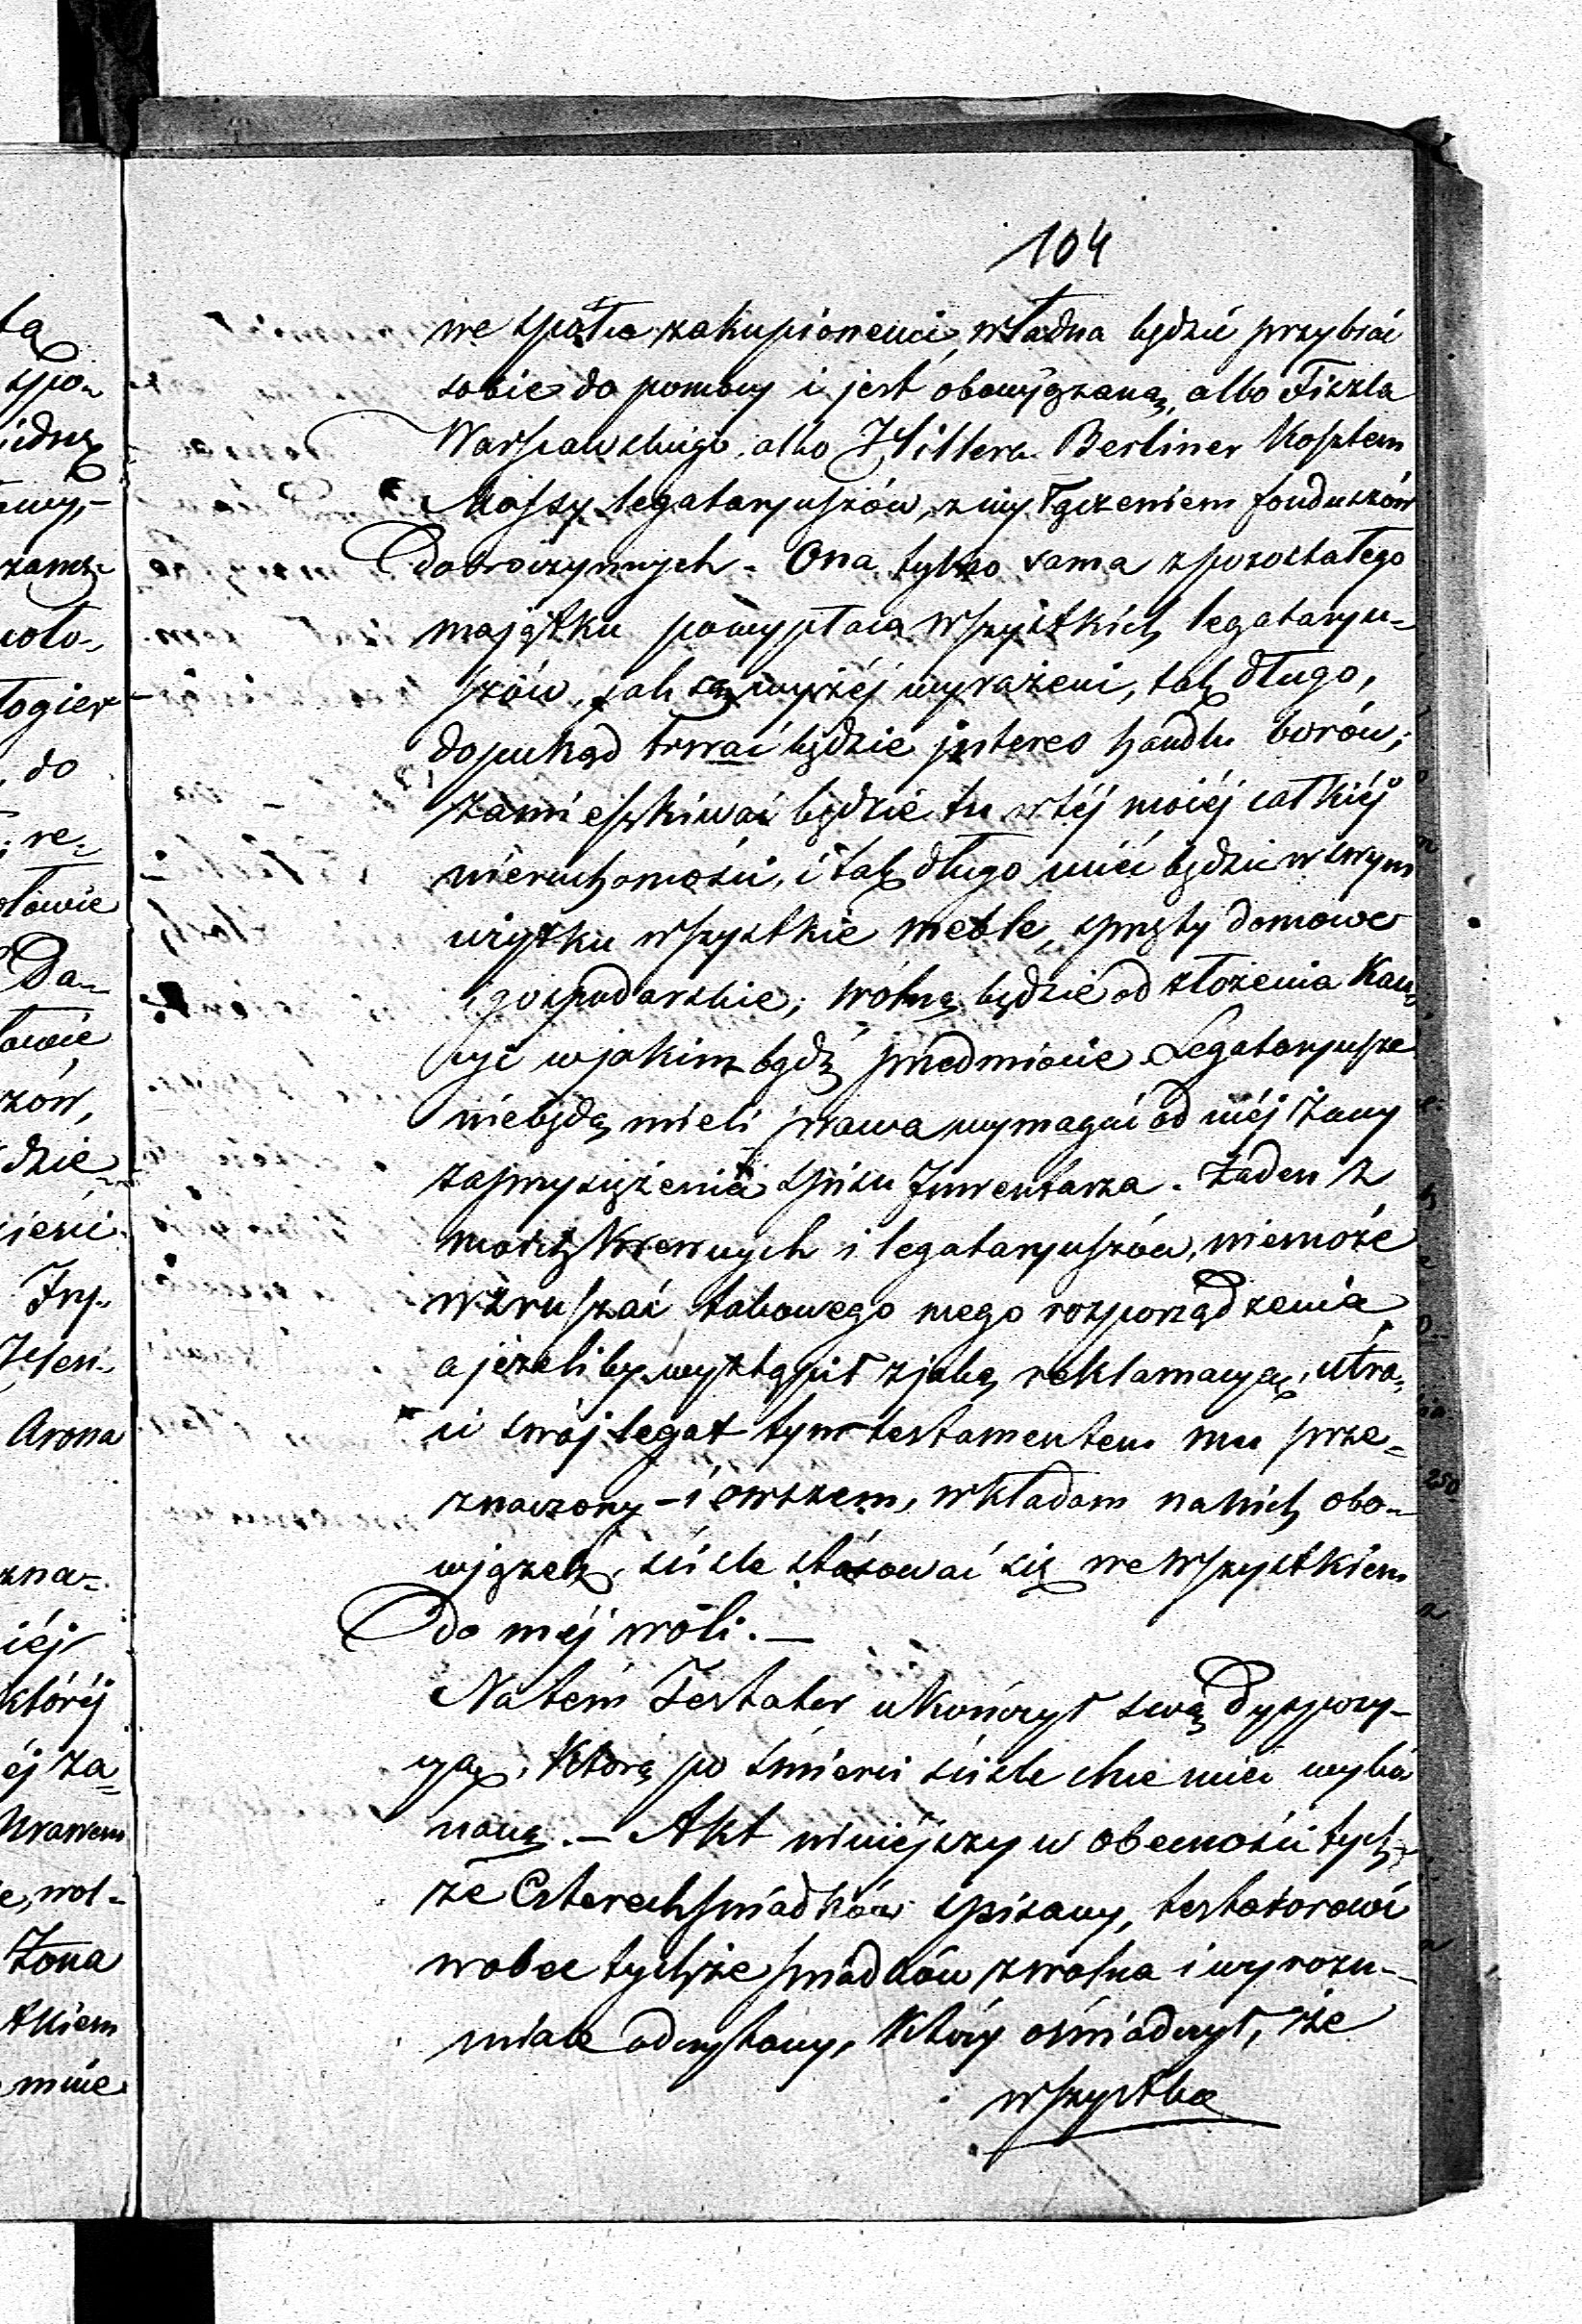 104
we spółce zakupionemi, władna będzie przybrać
sobie do pomocy i jest obowiązaną, albo Fiszla
Warszawskiego, albo Hillera Berliner kosztem
Massy legataryuszów, z wyłączeniem funduszów
dobroczynnych. Ona tylko sama z pozostałego
majątku powypłaca wszystkich legataryu-
szów, jak są wyżéj wyrażeni, tak długo,
dopukąd trwać będzie interes handlu borów;
zamieszkiwać będzie tu w téj moiéj całkiéj
nieruchomości, i tak długo mieć będzie w swym
użytku wszystkie meble, sprzęty domowe
i gospodarskie; wolną będzie od złożenia Kau-
cyi w jakim bądź przedmiocie. Legataryusze
niebędą mieli prawa wymagać od méj żony
zaprzysiężenia spisu Inwentarza. Żaden z
moich Krewnych i legataryuszów, niemoże
wzruszać takowego mego rozporządzenia,
a jeżeliby wystąpił z jaką reklamacyą, utra-
ci swój legat tym testamentem mu prze-
znaczony – i owszem, wkładam na nich obo-
wiązek, ściśle stósować się we wszystkiem
do méj woli. –
Na tém Testator ukończył swą dyspozy-
cyą, którą po śmierci ściśle chce mieć wyko
naną. – Akt niniéjszy w obecności tych-
że Czterech świadków spisany, testatorowi
wobec tychże świadków zwolna i wyrozu-
miale odczytany, który oświadczył, że
wszystko
tą
spo-
zamz-
, do
; re-
ołowie
Da-
zów,
dzie
Arona
zna-
iéj
któréj
éj za-
e, wol-
Żona
mnie
250